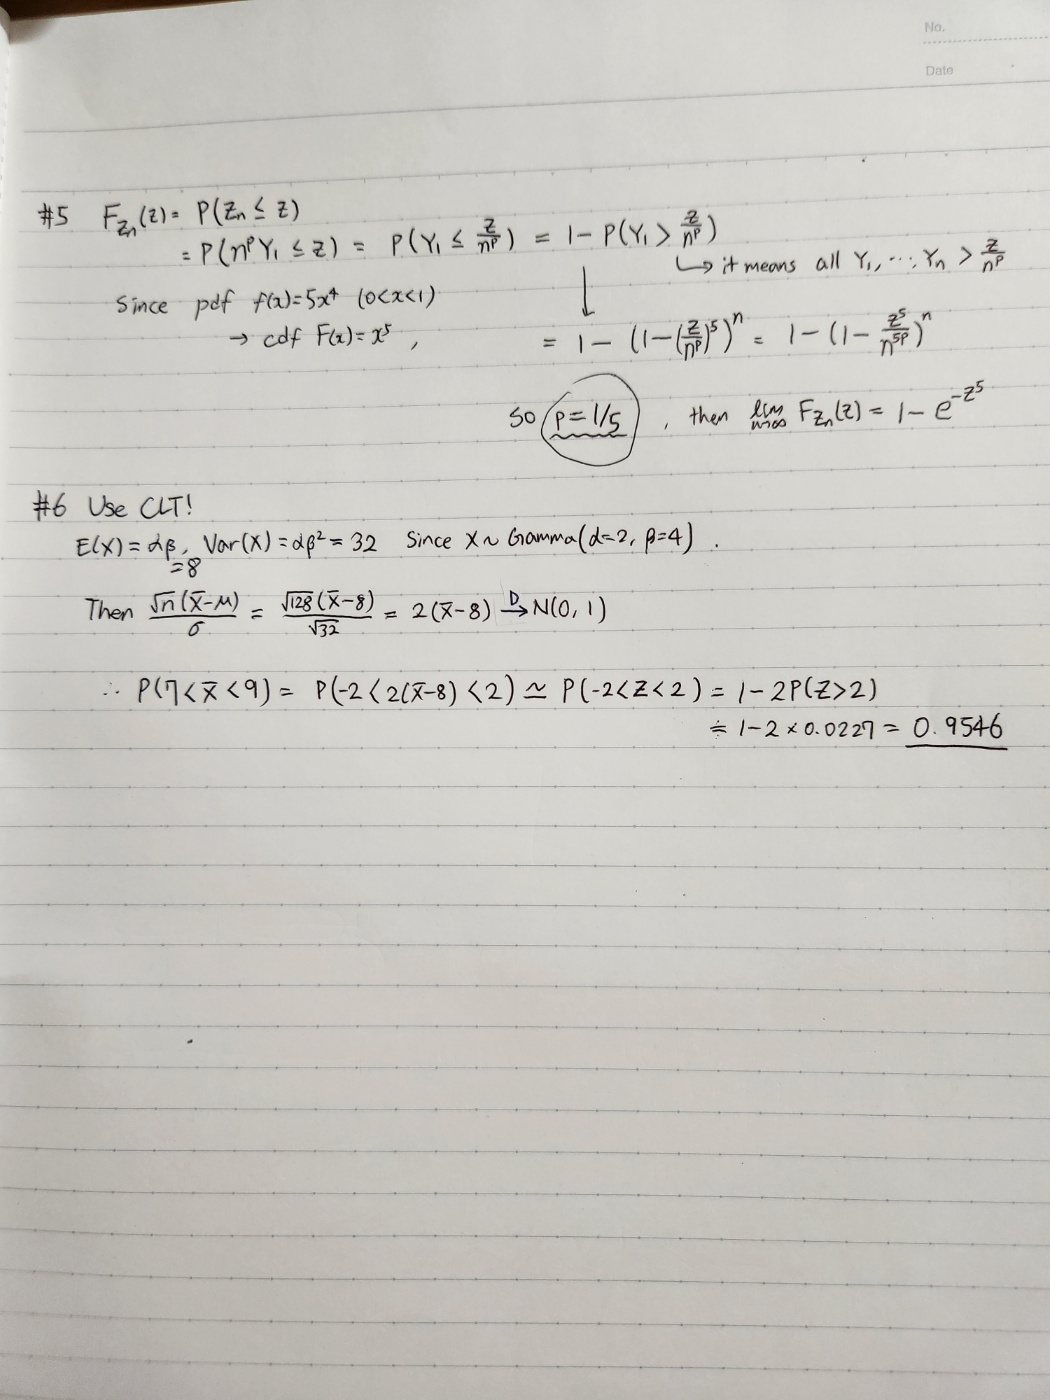 No.
Date
#5 F_{Zn}(z) = P(Zn ≤ z)
= P(n^p Y₁ ≤ z) = P(Y₁ ≤ z/n^p) = 1 - P(Y₁ > z/n^p)
↳ it means all Y₁, ..., Yn > z/n^p
Since pdf f(x) = 5x⁴ (0<x<1)
→ cdf F(x) = x⁵ ,
↓ = 1 - (1-(z/n^p)⁵)^n = 1 - (1 - z⁵/n^{5p})^n
So p = 1/5 , then lim n→∞ F_{Zn}(z) = 1 - e^{-z⁵}
#6 Use CLT!
E(X) = αβ, Var(X) = αβ² = 32 Since X ~ Gamma(α=2, β=4) .
= 8
Then √n(x̄-μ)/σ = √128(x̄-8)/√32 = 2(x̄-8) →^D N(0, 1)
∴ P(7<x̄<9) = P(-2<2(x̄-8)<2) ≃ P(-2<Z<2) = 1-2P(Z>2)
≒ 1-2×0.0227 = 0.9546